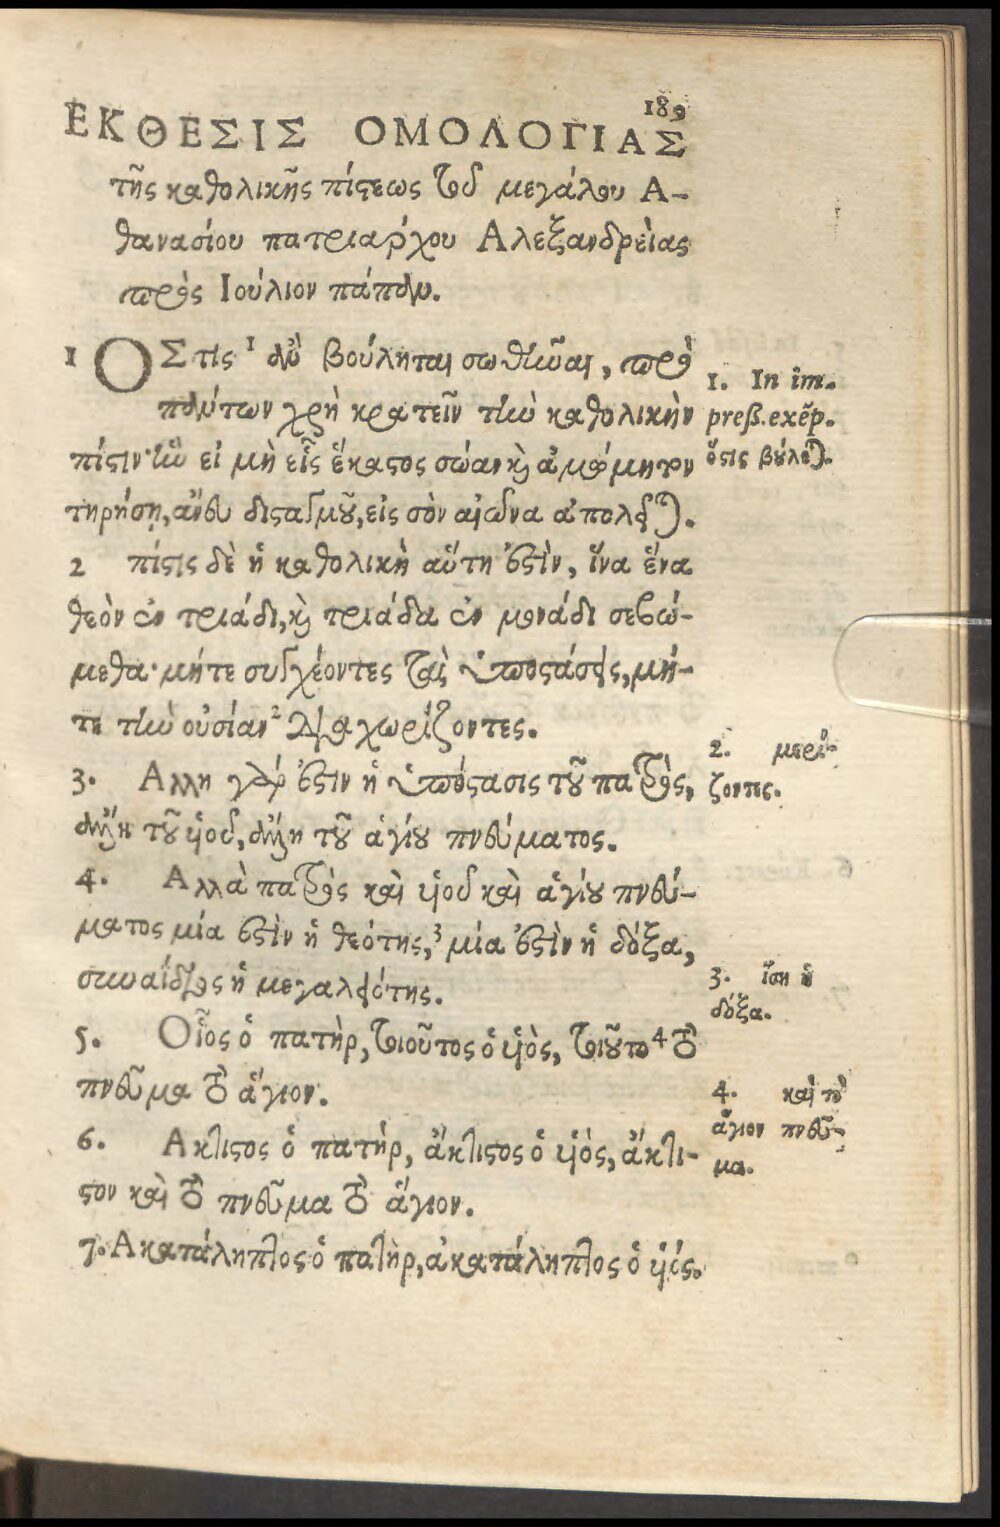 189
ΕΚΘΕΣΙΣ ΟΜΟΛΟΓΙΑΣ
τῆς καθολικῆς πίστεως τοῦ μεγάλου Α-
θανασίου πατριάρχου Αλεξανδρείας
πρὸς Ιούλιον πάπαν.
1 ΟΣτις ¹ ἂν βούληται σωθῆναι, πρὸ
πάντων χρὴ κρατεῖν τὴν καθολικὴν
πίστιν· ἣν εἰ μὴ εἷς ἕκαστος σώαν καὶ ἀμώμητον
τηρήσῃ, ἄνευ δισταγμοῦ, εἰς τὸν αἰῶνα ἀπολεῖται.
2 πίστις δὲ ἡ καθολικὴ αὕτη ἐστὶν, ἵνα ἕνα
θεὸν ἐν τριάδι, καὶ τριάδα ἐν μονάδι σεβώ-
μεθα· μήτε συγχέοντες τὰς ὑποστάσεις, μή-
τε τὴν οὐσίαν ² διαχωρίζοντες.
3. Αλλη γάρ ἐστιν ἡ ὑπόστασις τοῦ πατρὸς,
ἄλλη τοῦ υἱοῦ, ἄλλη τοῦ ἁγίου πνεύματος.
4. Αλλὰ πατρὸς καὶ υἱοῦ καὶ ἁγίου πνεύ-
ματος μία ἐστὶν ἡ θεότης, ³ μία ἐστὶν ἡ δόξα,
συναΐδιος ἡ μεγαλειότης.
5. Οἷος ὁ πατὴρ, τοιοῦτος ὁ υἱὸς, τοιοῦτο ⁴ τὸ
πνεῦμα τὸ ἅγιον.
6. Ακτιστος ὁ πατήρ, ἄκτιστος ὁ υἱός, ἄκτι-
στον καὶ τὸ πνεῦμα τὸ ἅγιον.
7. Ακατάληπτος ὁ πατὴρ, ἀκατάληπτος ὁ υἱός.
1. In im-
preß. exẽp.
ὅστις βούλεται.
2. μερί-
ζοντες.
3. ἴση ἡ
δόξα.
4. καὶ τὸ
ἅγιον πνεῦ-
μα.